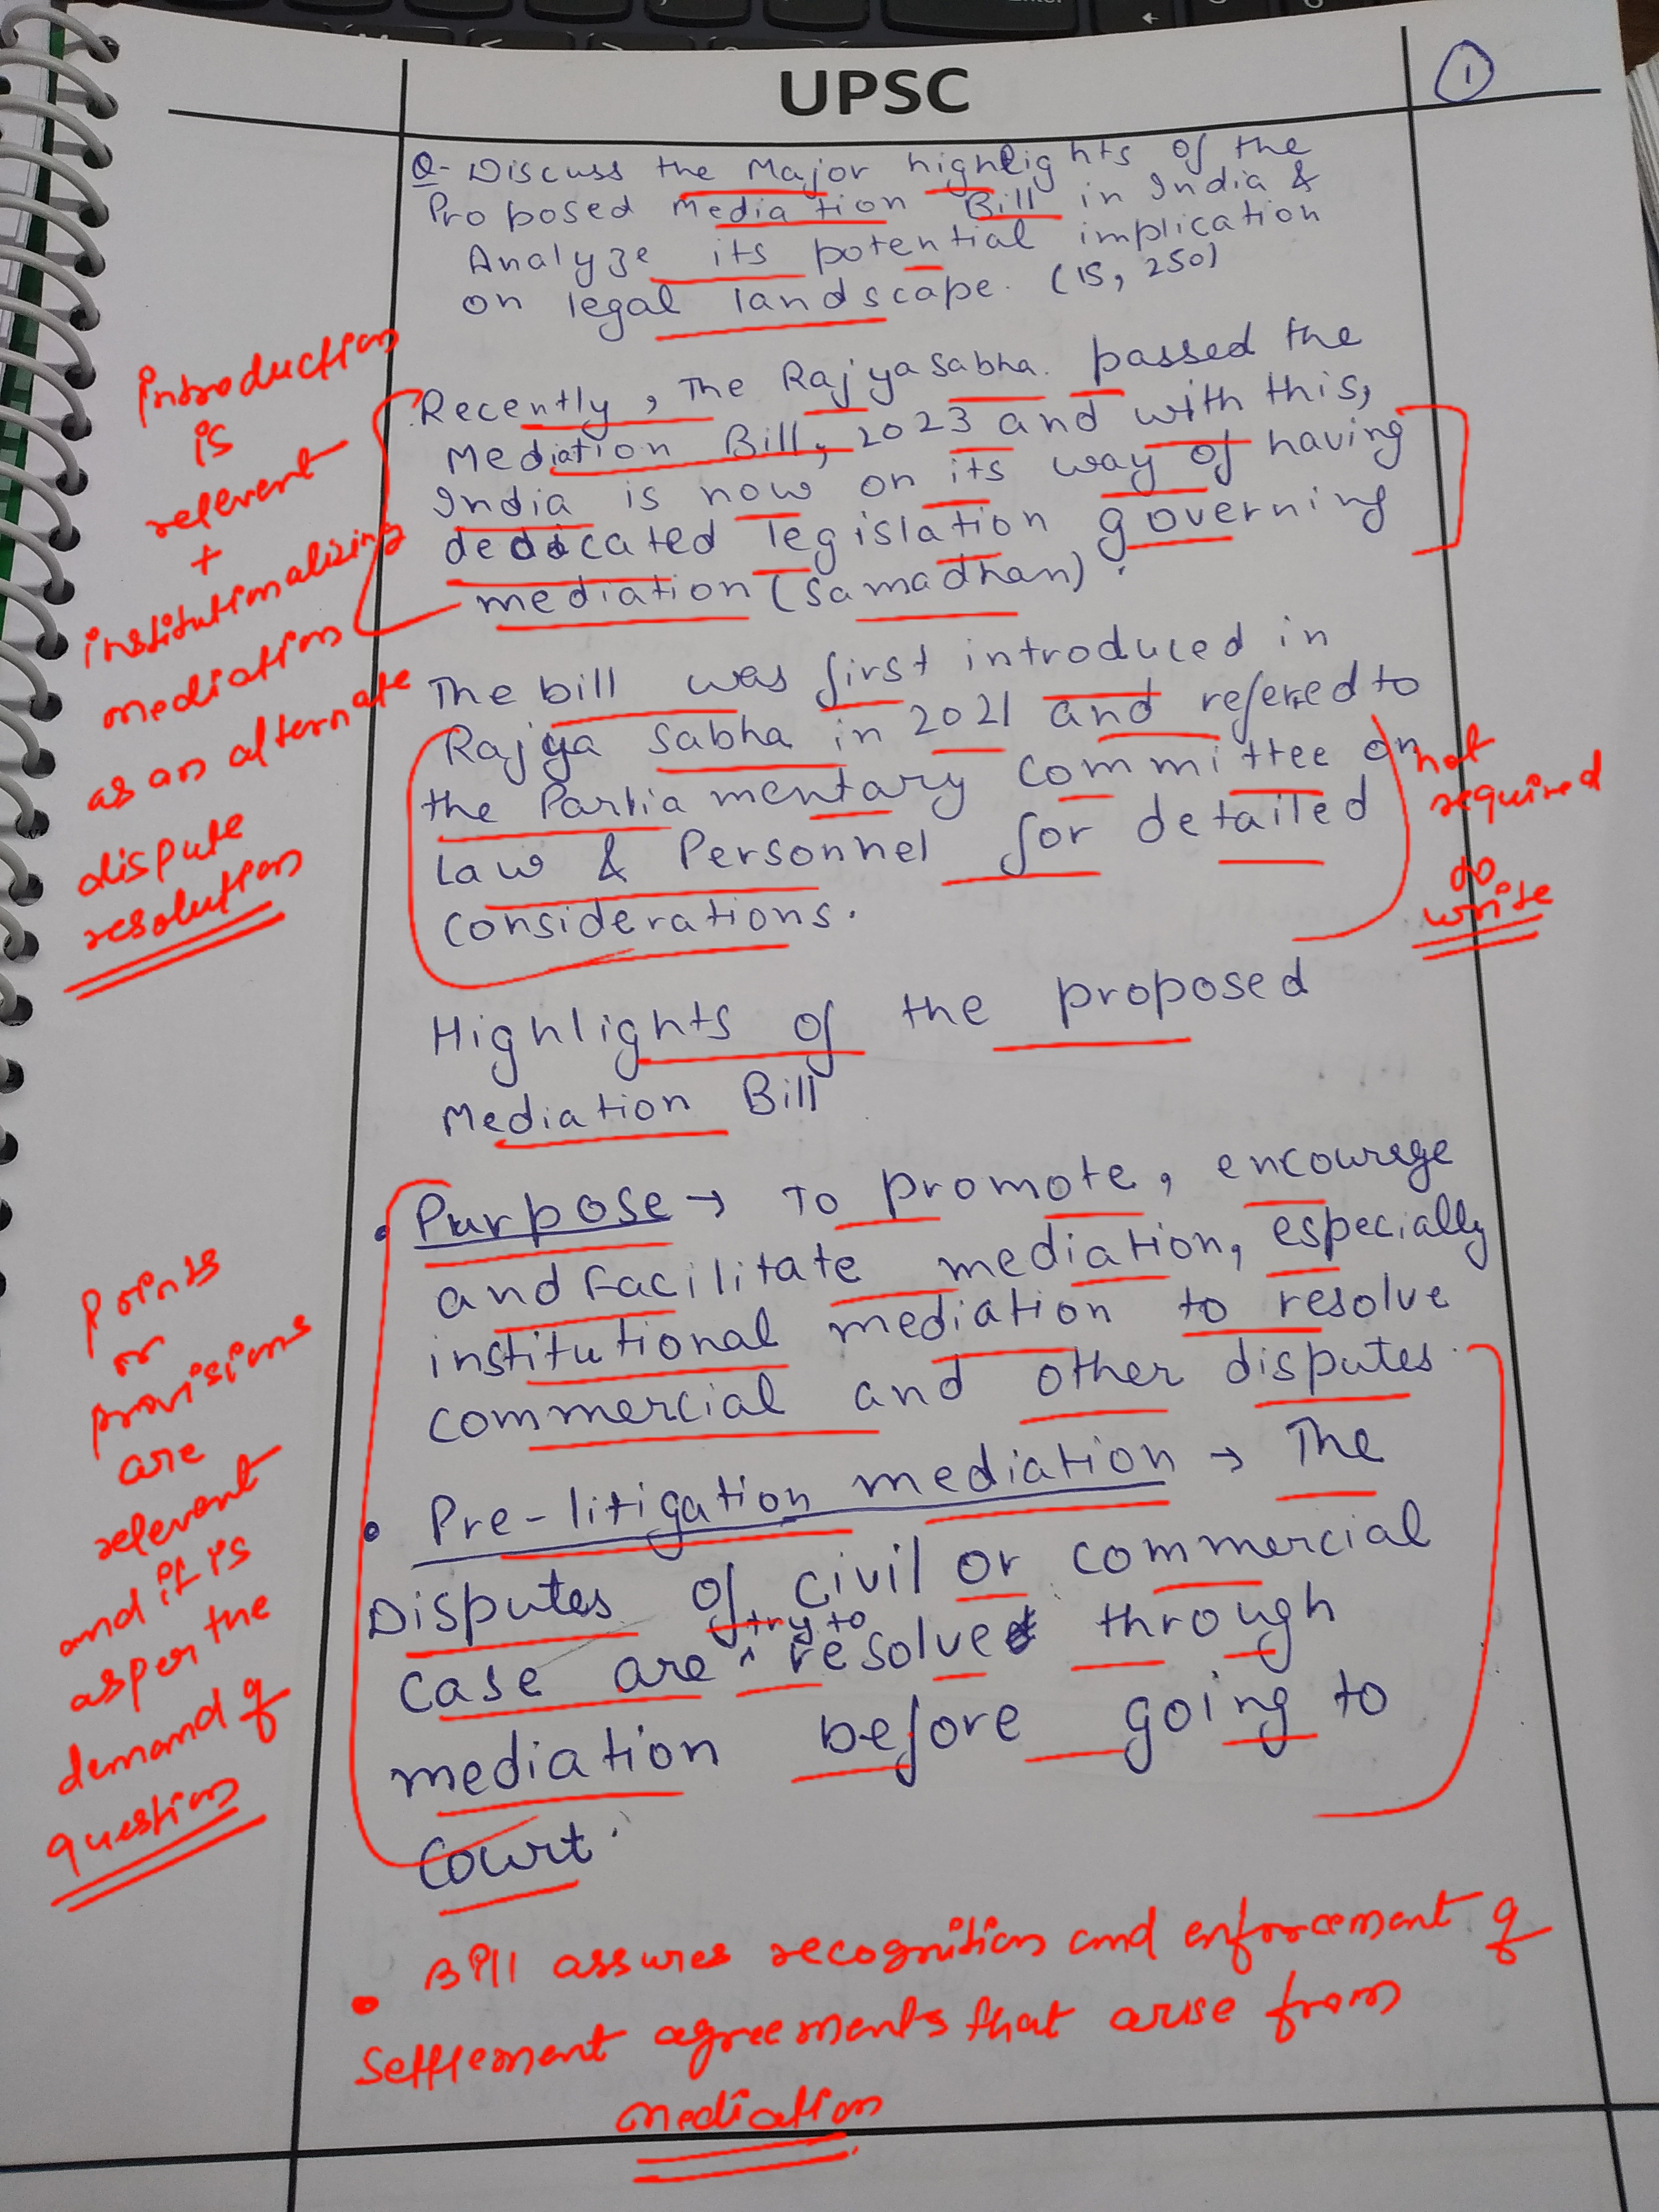 UPSC
1
Q- Discuss the Major highlights of the
Proposed Mediation Bill in India &
Analyze its potential implication
on legal landscape. (15, 250)
Recently, The Rajya Sabha. passed the
Mediation Bill, 2023 and with this,
India is now on its way of having
dedicated legislation governing
mediation (Samadhan).
introduction
is
relevent
+
institutionalizing
mediation
as an alternate
dispute
resolution
The bill was first introduced in
Rajya Sabha in 2021 and refered to
the Parliamentary Committee on
Law & Personnel for detailed
considerations.
not
required
to
write
Highlights of the proposed
Mediation Bill
• Purpose → To promote, encourage
and facilitate mediation, especially
institutional mediation to resolve
commercial and other disputes.
• Pre-litigation mediation → The
Disputes of civil or commercial
case are try to resolve through
mediation before going to
Court.
Points
or
provisions
are
relevant
and it is
as per the
demand of
question
• Bill assures recognition and enforcement of
Settlement agreements that arise from
mediation